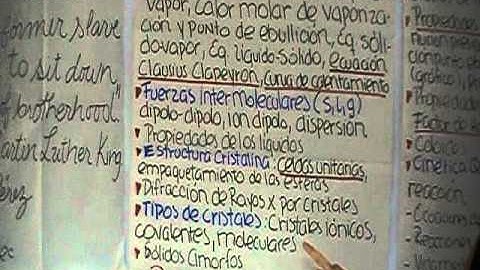 former slave
to sit down
of brotherhood."
Martin Luther King
vapor, calor molar de vaporiza-
ción y punto de ebullición, Eq. sóli-
do vapor, Eq. líquido-sólido, ecuación
Clausius Clapeyron, curva de calentamiento
Fuerzas Intermoleculares (s,l,g)
dipolo-dipolo, ion dipolo, dispersión
Propiedades de los líquidos
Estructura Cristalina: celdas unitarias,
empaquetamiento de las esferas
Difracción de Rayos X por cristales
Tipos de cristales: Cristales iónicos,
covalentes, moleculares
Sólidos amorfos
Propiedades
Propiedad
Factor de
Coloides
Cinética Q
reacción
- Reacciones